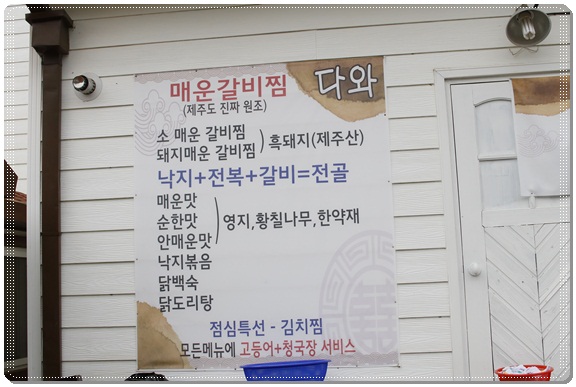 매운갈비찜 다와
(제주도 진짜 원조)
소 매운 갈비찜
돼지매운 갈비찜 ) 흑돼지(제주산)
낙지+전복+갈비=전골
매운맛
순한맛 ) 영지,황칠나무,한약재
안매운맛
낙지볶음
닭백숙
닭도리탕
점심특선 - 김치찜
모든메뉴에 고등어+청국장 서비스